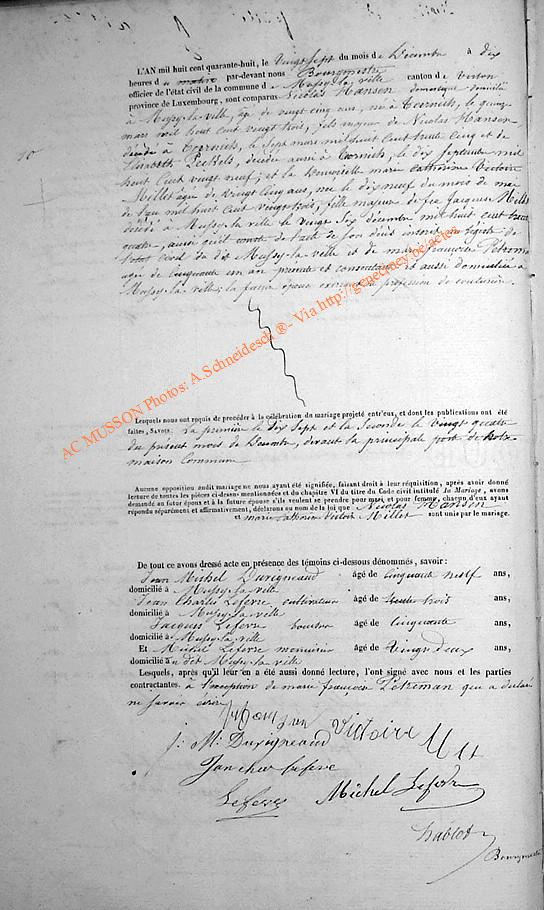 L'AN mil huit cent quarante-huit, le vingt sept du mois de Décembre à dix
heures du matin par-devant nous Bourgmestre
officier de l'état civil de la commune de Mussy-la-ville canton de Virton
province de Luxembourg, sont comparus Nicolas Hansen domestique domicilié
à Mussy-la-ville, âgé de vingt cinq ans, né à Cornich, le quinze
mars mil huit cent vingt trois, fils majeur de Nicolas Hansen
décédé à Cornich, le sept mars mil huit cent trente cinq et de
Elisabeth décédée aussi à Cornich, le dix septembre mil
huit cent vingt neuf; et la Demoiselle marie catherine Victoire
Millet âgée de vingt cinq ans, née le dix neuf du mois de mai
de l'an mil huit cent vingt trois, fille majeure de feu Jacques Millet
décédé à Mussy-la-ville le vingt six décembre mil huit cent trente
quatre, ainsi qu'il conste de l'acte de son décès inscrit au registre de
l'état civil du dit Mussy-la-ville et de marie françoise
âgée de cinquante un an présente et consentante et aussi domiciliée à
Mussy-la-ville; la future épouse exerçant la profession de couturière.
AC MUSSON Photos: A.Schneidesch ®- Via http://geneanet.be/actes
Lesquels nous ont requis de procéder à la célébration du mariage projeté entr'eux, et dont les publications ont été
faites, SAVOIR: La première le dix sept et la seconde le vingt quatre
du présent mois de Décembre, devant la principale porte de notre
maison Commune
Aucune opposition audit mariage ne nous ayant été signifiée, faisant droit à leur réquisition, après avoir donné
lecture de toutes les pièces ci-dessus mentionnées et du chapitre VI du titre du Code civil intitulé du Mariage, avons
demandé au futur époux et à la future épouse s'ils veulent se prendre pour mari et pour femme, chacun d'eux ayant
répondu séparément et affirmativement, déclarons au nom de la loi que Nicolas Hansen
et marie catherine Victoire Millet sont unis par le mariage.
De tout ce avons dressé acte en présence des témoins ci-dessous dénommés, savoir :
Jean Michel Duvigneaud âgé de cinquante neuf ans,
domicilié à Mussy-la-ville
Jean Charles Lefevre cultivateur âgé de trente trois ans,
domicilié à Mussy-la-ville
Jacques Lefevre âgé de cinquante ans,
domicilié à Mussy-la-ville
Et Michel Lefevre menuisier âgé de vingt deux ans,
domicilié au dit Mussy-la-ville
Lesquels, après qu'il leur en a été aussi donné lecture, l'ont signé avec nous et les parties
contractantes. à l'exception de marie françoise qui a déclaré
ne savoir écrire
Victoire
j: M: Duvigneaud
Jean char lefevre
Lefevre Michel Lefevre
Bourgmestre